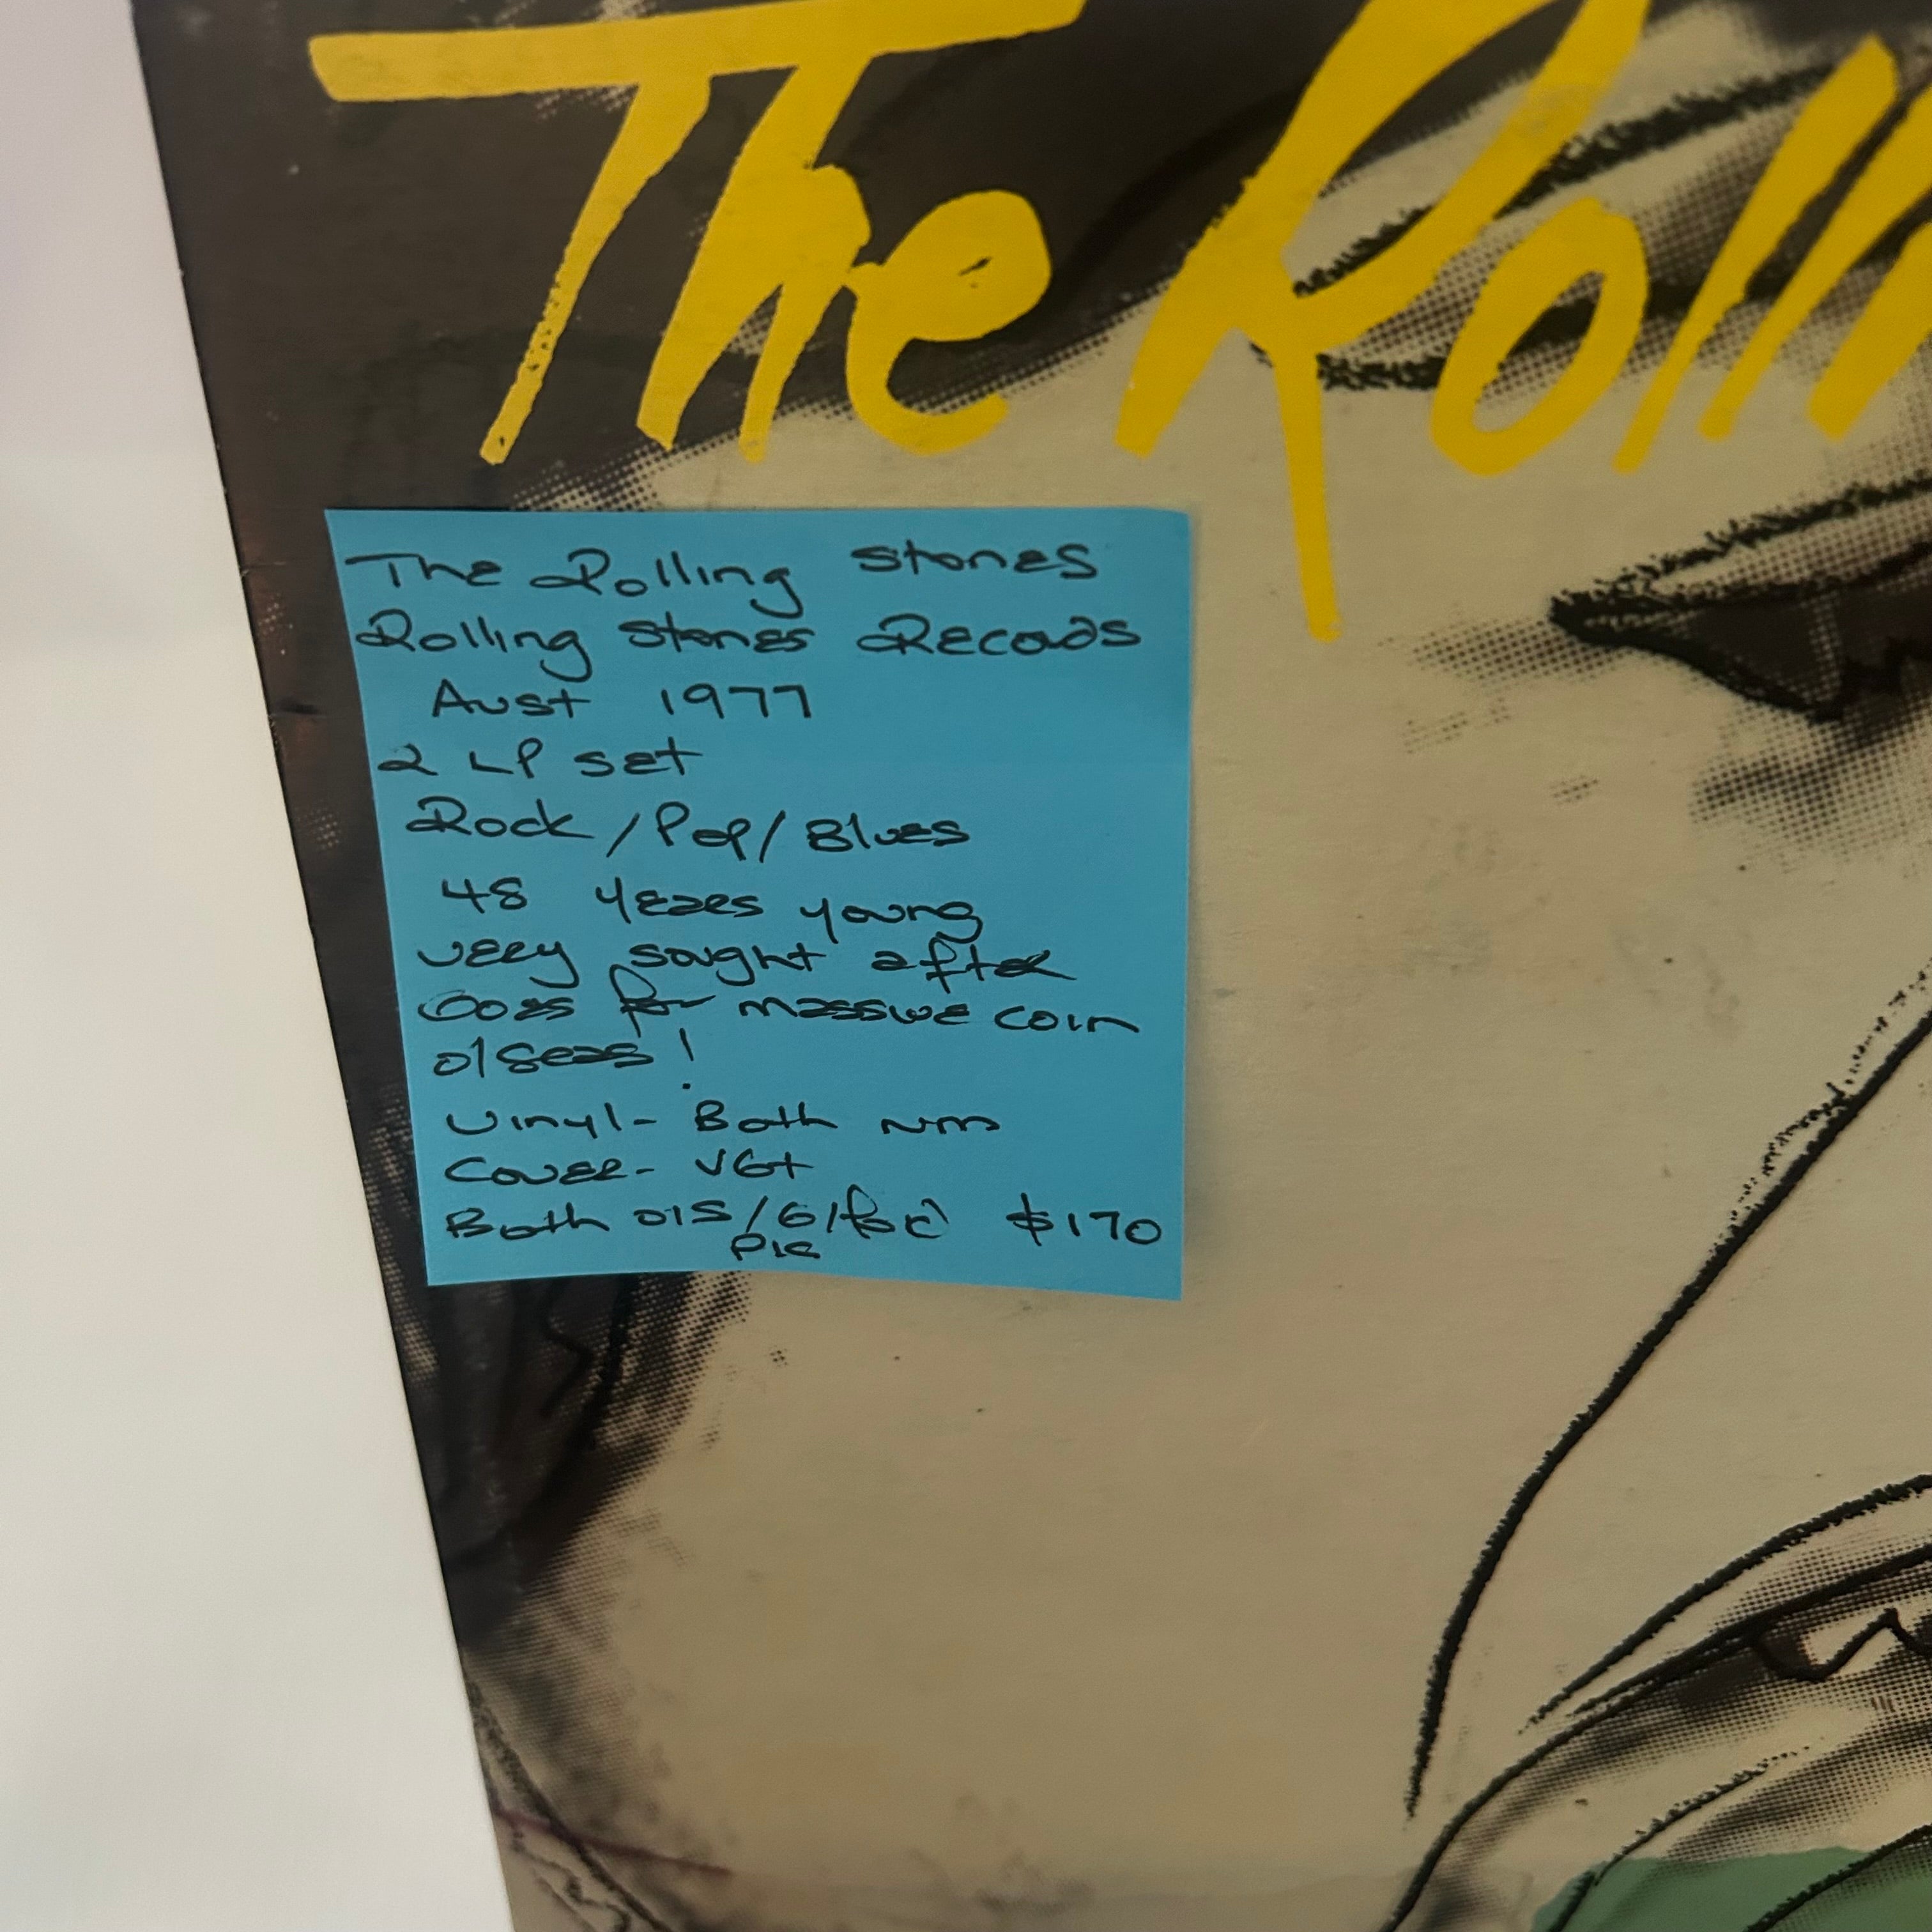 The Roll
The Rolling Stones
Rolling Stones Records
Aust 1977
2 LP set
Rock/Pop/Blues
48 years young
very sought after
Goes for massive coin
o/seas!
Vinyl- Both NM
Cover- VG+
Both O/S/G/fold $170
Pic